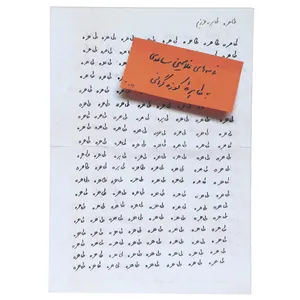 طاهره، طاهره عزیزم
طاهره طاهره طاهره طاهره طاهره طاهره طاهره طاهره
طاهره طاهره
طاهره طاهره
طاهره طاهره
طاهره طاهره
طاهره طاهره
طاهره طاهره طاهره طاهره طاهره طاهره طاهره طاهره
طاهره طاهره طاهره طاهره طاهره طاهره طاهره طاهره
طاهره طاهره طاهره طاهره طاهره طاهره طاهره طاهره
طاهره طاهره طاهره طاهره طاهره طاهره طاهره طاهره
طاهره طاهره طاهره طاهره طاهره طاهره طاهره طاهره
طاهره طاهره طاهره طاهره طاهره طاهره طاهره طاهره
طاهره طاهره طاهره طاهره طاهره طاهره طاهره طاهره
طاهره طاهره طاهره طاهره طاهره طاهره طاهره طاهره
طاهره طاهره طاهره طاهره طاهره طاهره طاهره طاهره
طاهره طاهره طاهره طاهره طاهره طاهره طاهره طاهره
طاهره طاهره طاهره طاهره طاهره طاهره طاهره طاهره
طاهره طاهره طاهره طاهره طاهره طاهره طاهره طاهره
نامه‌های غلامحسین ساعدی
به طاهره کوزه‌گرانی